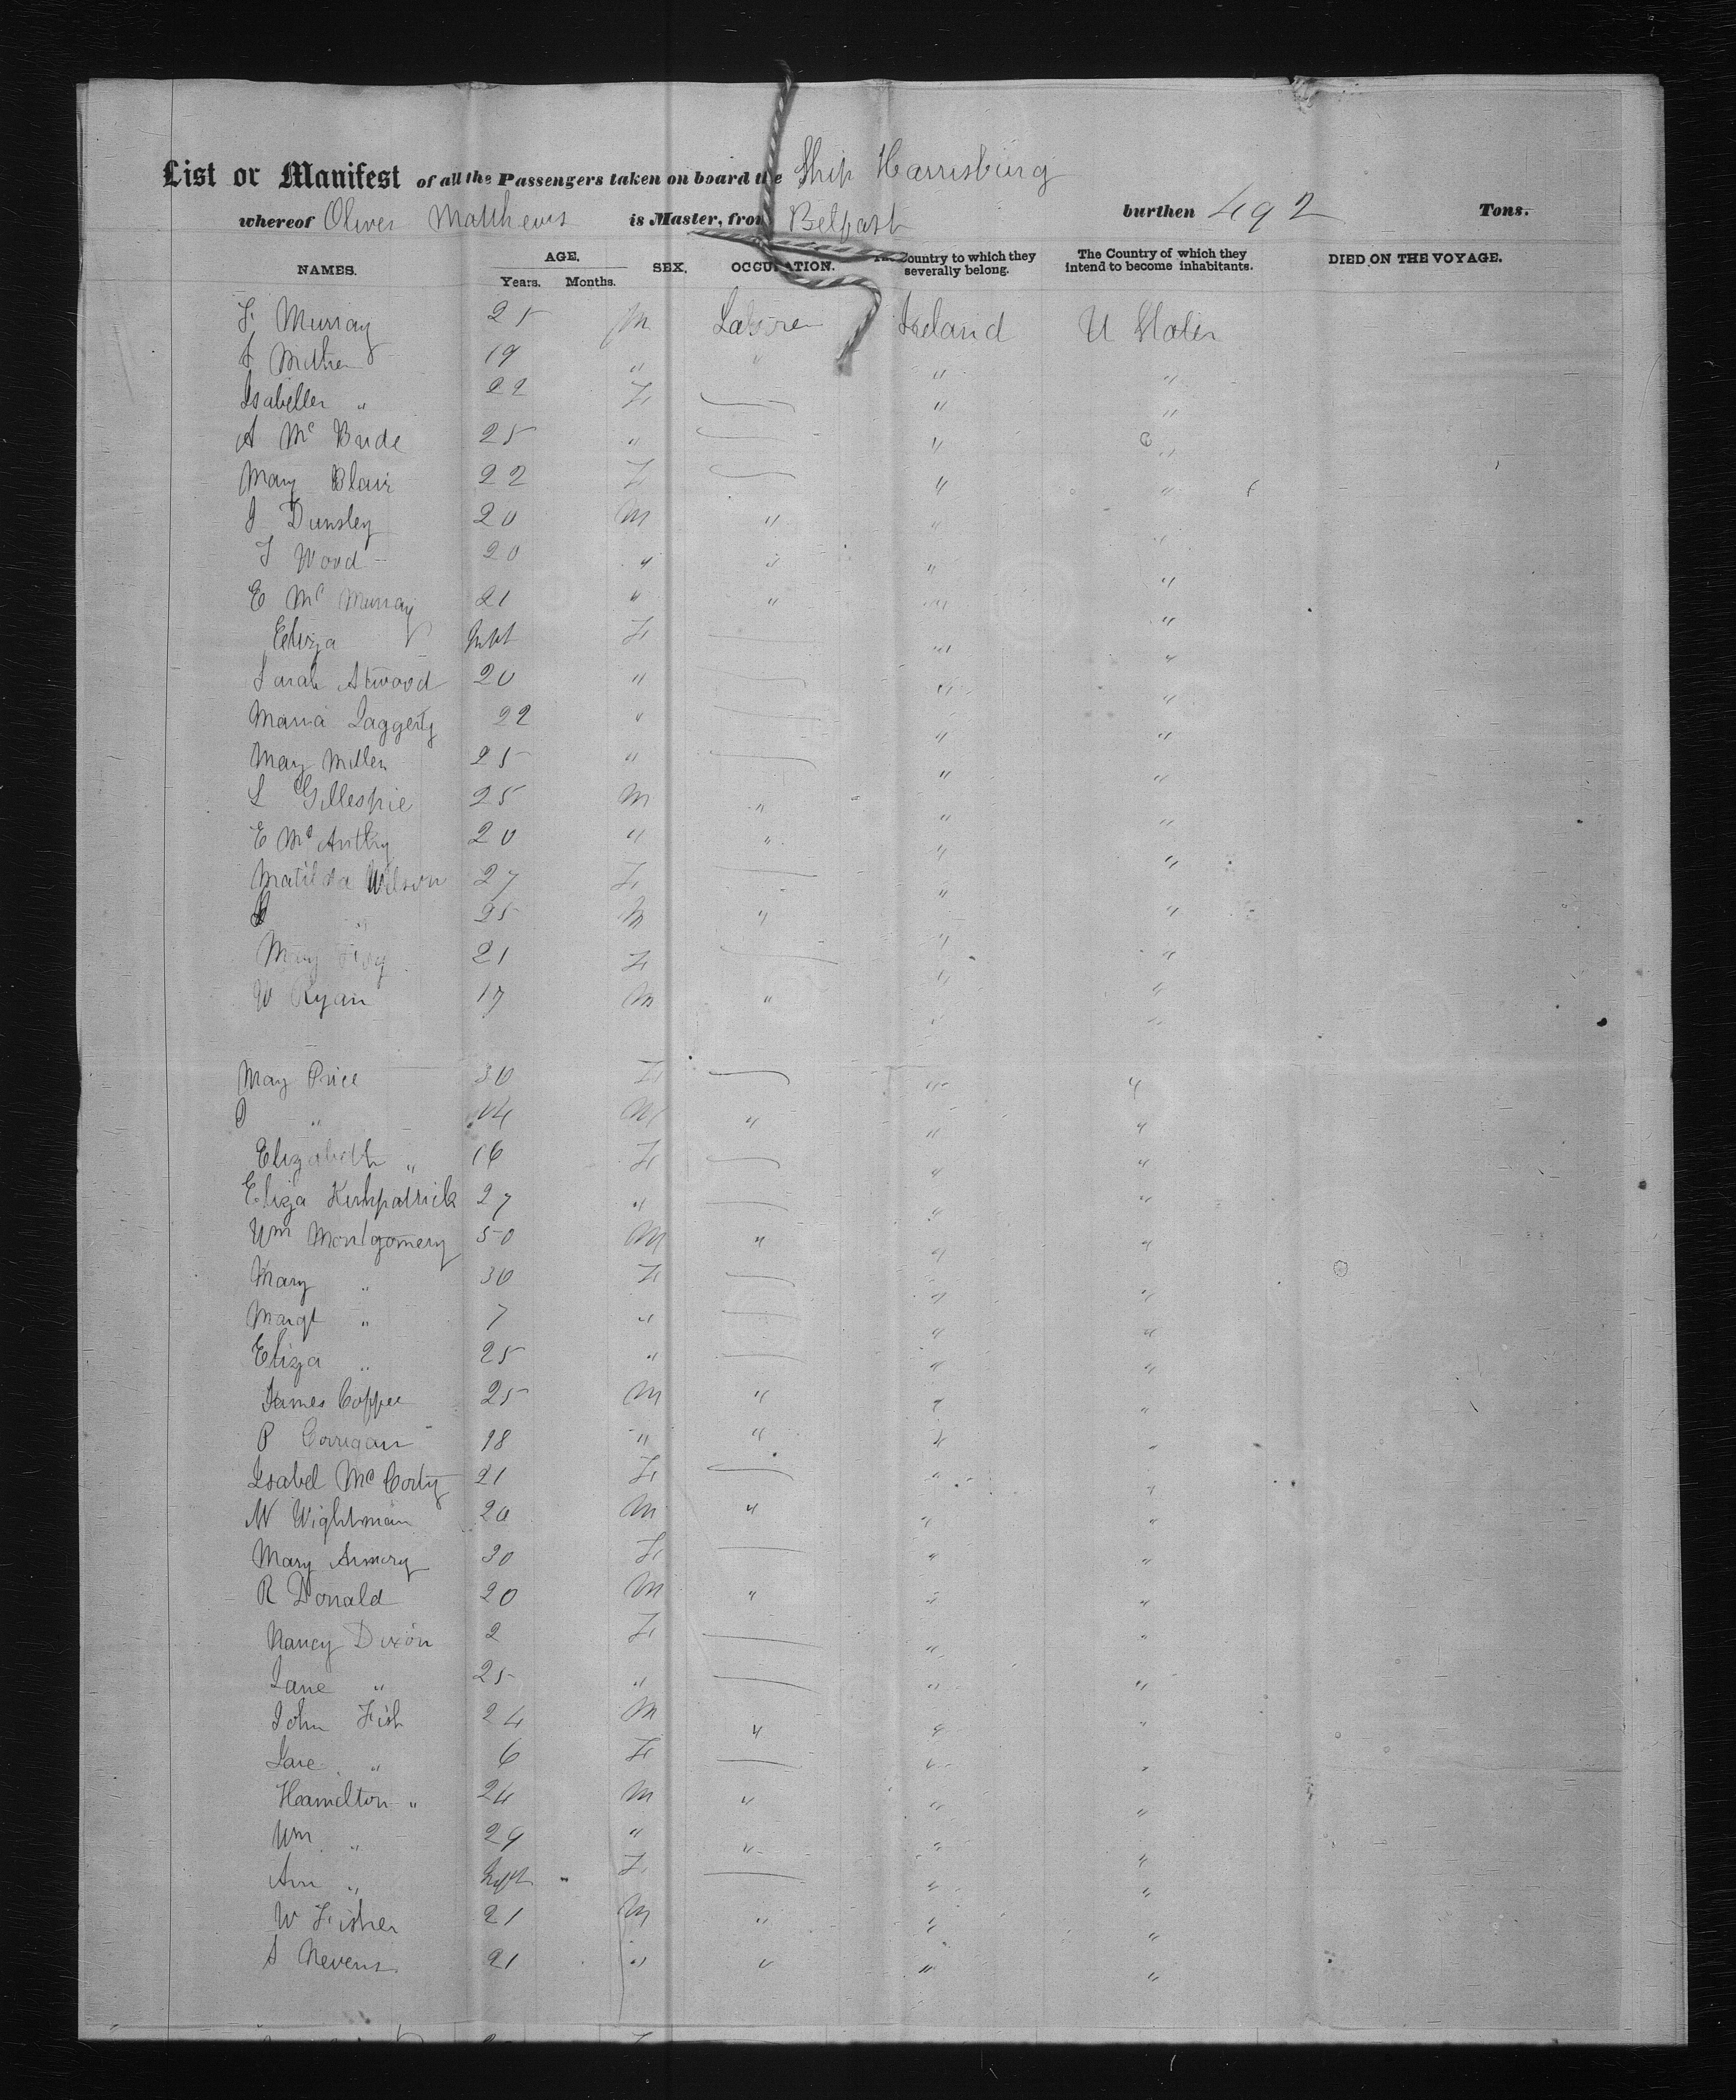 List or Manifest of all the Passengers taken on board the Ship Harrisburg
whereof Oliver Matthews is Master, from Belfast burthen 492 Tons.
NAMES. AGE. Years. Months. SEX. OCCUPATION. The Country to which they severally belong. The Country of which they intend to become inhabitants. DIED ON THE VOYAGE.
Murray 25 M Laborer Ireland U States
19 " " " "
" 22 F " "
A Mc Bride 25 " " "
Mary Blair 22 F " "
J Dunsley 20 M " " "
Wood 20 " " " "
E Mc Murray 21 " " " "
Eliza Inft F " "
Sarah Atwood 20 " " "
Maria 22 " " "
Mary Miller 25 " " "
Gillespie 25 M " " "
E Mc 20 " " " "
Matilda Wilson 27 F " "
" 25 M " " "
Mary 21 F " "
W Ryan 17 M " " "
Mary Price 30 F " "
" M " " "
Elizabeth " 16 F " "
Eliza Kirkpatrick 27 " " "
Wm Montgomery 50 M " " "
Mary " 30 F " "
Margt " 7 " " "
Eliza " 25 " " "
James 25 M " " "
P Corrigan 18 " " " "
Isabel Mc Corty 21 F " "
W Wightman 20 M " " "
Mary 30 F " "
R Donald 20 M " " "
Nancy Dixon 2 F " "
Jane " 25 " " "
John Fish 24 M " " "
" 6 F " "
Hamilton " 24 M " " "
Wm " 29 " " " "
Ann " Inft F " "
W Fisher 21 M " " "
Nevens 21 " " " "